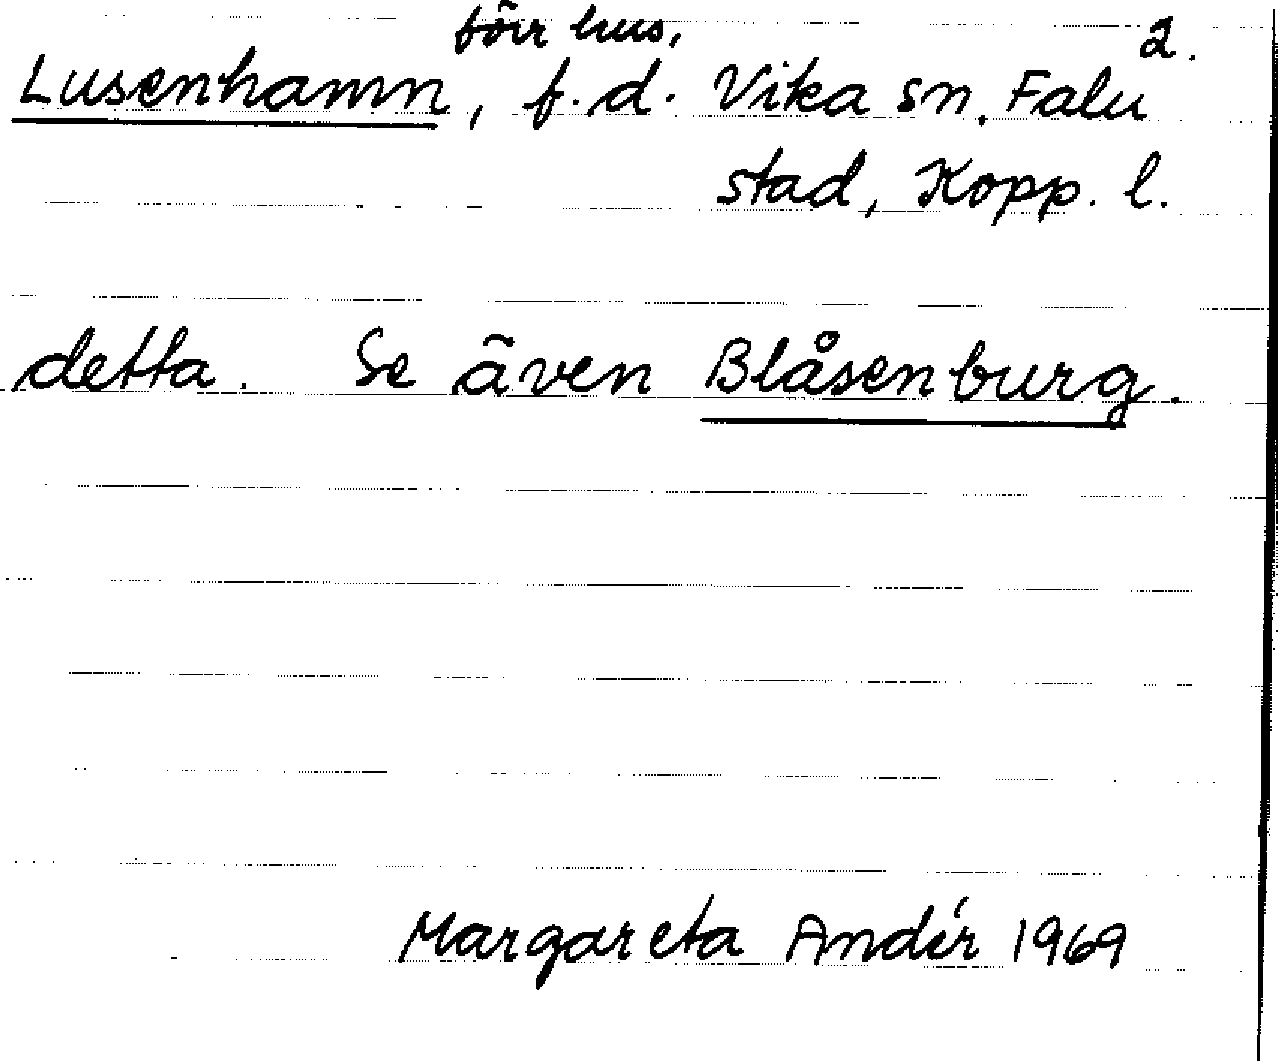 förr hus, 2.
Lusenhamn, f.d. Vika sn. Falu
stad, Kopp. l.
detta. Se även Blåsenburg.
Margareta Andér 1969